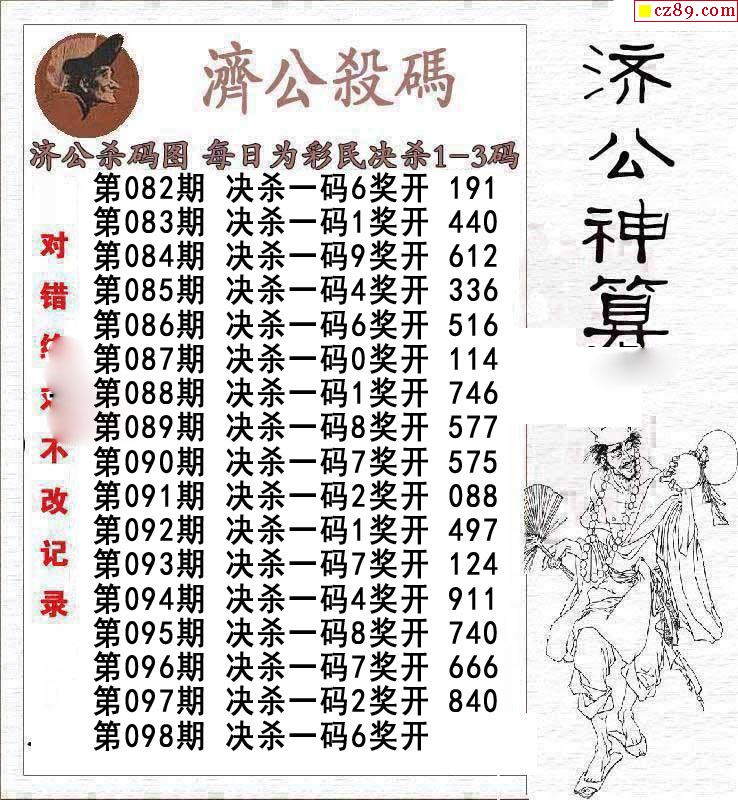 cz89.com
濟公殺碼
济公杀码图 每日为彩民决杀1-3码
第082期 决杀一码6奖开 191
第083期 决杀一码1奖开 440
第084期 决杀一码9奖开 612
第085期 决杀一码4奖开 336
第086期 决杀一码6奖开 516
第087期 决杀一码0奖开 114
第088期 决杀一码1奖开 746
第089期 决杀一码8奖开 577
第090期 决杀一码7奖开 575
第091期 决杀一码2奖开 088
第092期 决杀一码1奖开 497
第093期 决杀一码7奖开 124
第094期 决杀一码4奖开 911
第095期 决杀一码8奖开 740
第096期 决杀一码7奖开 666
第097期 决杀一码2奖开 840
第098期 决杀一码6奖开
对错不改记录
济公神算